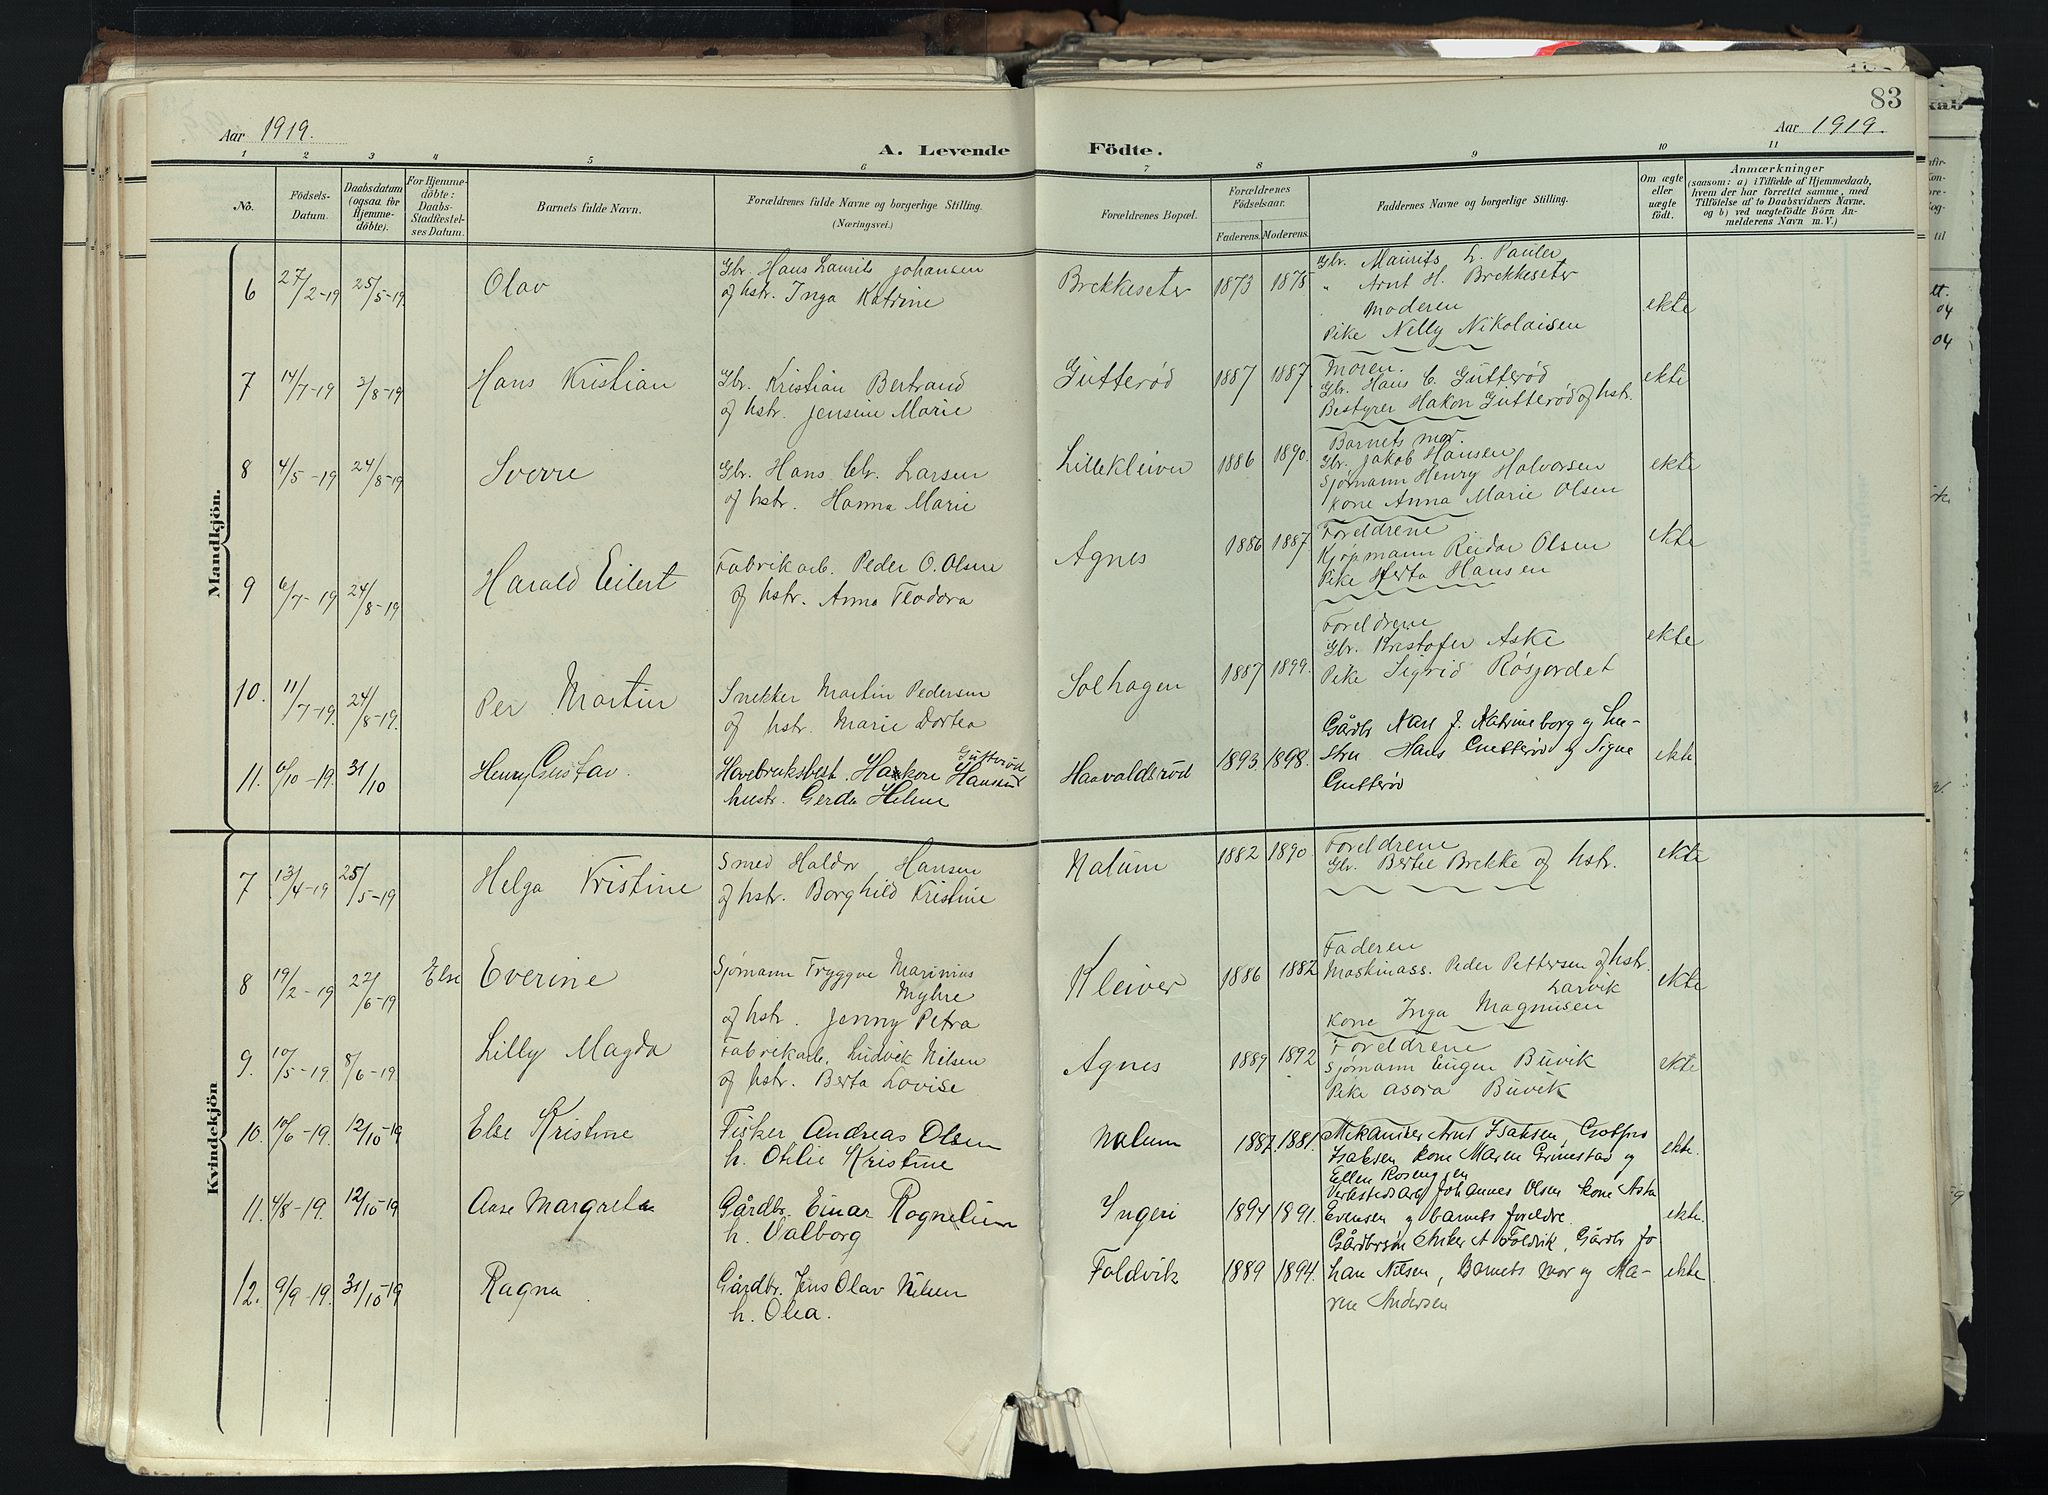 83
Aar 1919.
Aar 1919.
A. Levende Födte.
1 2 3 4 5 6 7 8 9 10 11
No.
Födsels-Datum.
Daabsdatum (ogsaa for Hjemme-döbte).
For Hjemme-döbte: Daabs-Stadfestel-ses Datum.
Barnets fulde Navn.
Forældrenes fulde Navne og borgerlige Stilling.
(Næringsvei.)
Forældrenes Bopæl.
Forældrenes Födselsaar.
Faderens. Moderens.
Faddernes Navne og borgerlige Stilling.
Om ægte eller uægte födt.
Anmærkninger
(saasom: a) i Tilfælde af Hjemmedaab,
hvem der har forrettet samme, med
Tilföielse af to Daabsvidners Navne,
og b) ved uægtefödte Börn An-
melderens Navn m. V.)
Mandkjön.
6 27/2-19 25/5-19 Olav
Gbr. Hans Laurits Johansen
og hstr. Inga Katrine
Brekkeseter 1873 1875
Gbr. Maurits L. Pauler
" Arnt H. Brekkeseter
Moderen
Pike Nelly Nikolaisen
ekte
7 14/7-19 3/8-19 Hans Kristian
Gbr. Kristian Bertrand
og hstr. Jensine Marie
Gutterød 1887 1887
Moren.
Gbr. Hans C. Gutterød
Bestyrer Hakon Gutterød og hstr.
ekte
8 4/5-19 24/8-19 Sverre
Gbr. Hans Chr. Larsen
og hstr. Hanna Marie
Lillekleiver 1886 1890.
Barnets mor.
Gbr. Jakob Hansen
Sjømann Henry Halvorsen
Kone Anna Marie Olsen
ekte
9 6/7-19 24/8-19 Harald Eilert
Fabrikarb. Peder O. Olsen
og hstr. Anna Teodora
Agnes 1886 1887
Foreldrene
Kjøpmann Reidar Olsen
Pike Herta Hansen
ekte
10. 11/7-19. 24/8-19. Per Martin
Snekker Martin Pedersen
og hstr. Marie Dortea
Solhagen 1887 1899.
Foreldrene
Gbr. Kristofer Aske
Pike Sigrid Røsjordet
ekte
11. 6/10-19. 31/10 Henry Gustav.
Havebruksbest. Haakon Hansen Gutterød
hustr. Gerda Helene
Haavaldsrød 1893. 1898.
Gårdbr J. Katrineborg og hu-
stru Hans Gutterød og Signe
Gutterød
ekte
Kvindekjön
7 13/4-19 25/5-19 Helga Kristine
Smed Haldor Hansen
og hstr. Borghild Kristine
Nalum 1882 1890
Foreldrene
Gbr. Bertil Brekke og hstr.
ekte
8 19/2-19 22/6-19 Else Everine
Sjømann Tryggve Marinius
Myhre
og hstr. Jenny Petra
Kleiver 1886 1882
Faderen
Maskinass. Peder Pettersen og hstr.
Larvik
Kone Inga Magnusen
ekte
9. 10/5-19. 8/6-19 Lilly Magda
Fabrikarb. Ludvik Nilsen
og hstr. Berta Lovise
Agnes 1889 1892
Foreldrene
Sjømann Eugen Buvik
Pike Asora Buvik
ekte
10. 10/6-19. 12/10-19 Else Kristine
Fisker Andreas Olsen
h. Otilie Kristine
Nalum 1887. 1881.
Mekaniker Arnt Isaksen,
Isaksen kone Maren Grimstad og
Ellen Rosengren
ekte.
11. 4/8-19. 12/10-19 Aase Margrete
Gårdbr. Einar Rognelium
h. Valborg
Ingeri 1894 1891.
Verkstedsarb Johannes Olsen kone Asta
Evensen og barnets foreldre.
ekte.
12. 9/9-19. 31/10-19 Ragna.
Gårdbr. Jens Olav Nilsen
h. Olea.
Foldvik 1889 1894.
Gårdbrsøn Anker A Foldvik, Gårdbr Jo
han Nilsen, Barnets mor og Ma-
ren Andersen
ekte